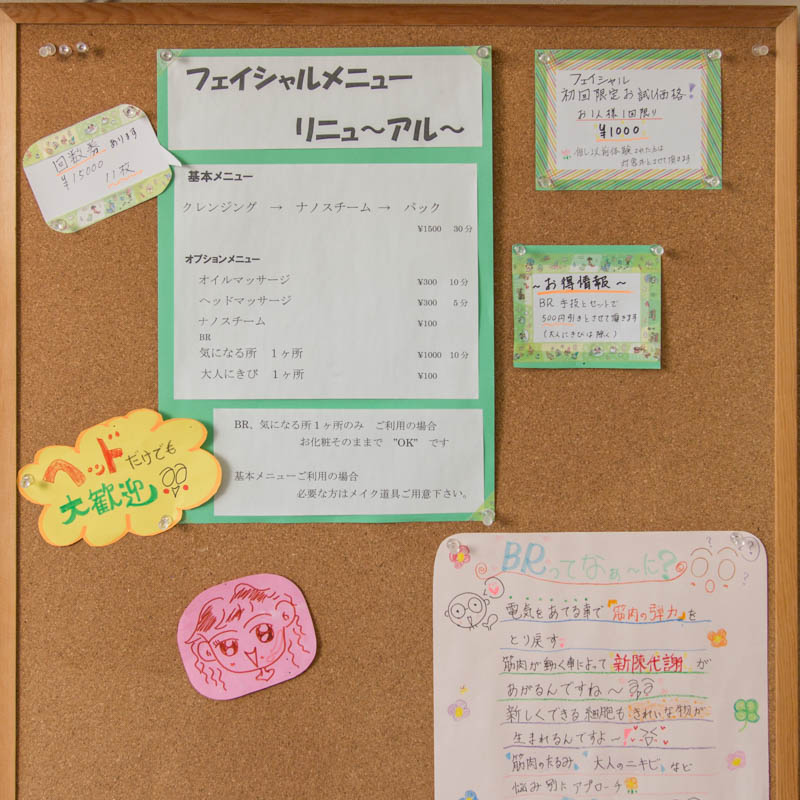 フェイシャルメニュー
リニュ～アル～
回数券 あります
¥15000
11枚
基本メニュー
クレンジング → ナノスチーム → パック
¥1500 30分
オプションメニュー
オイルマッサージ ¥300 10分
ヘッドマッサージ ¥300 5分
ナノスチーム ¥100
BR
気になる所 1ヶ所 ¥1000 10分
大人にきび 1ヶ所 ¥100
BR、気になる所1ヶ所のみ ご利用の場合
お化粧そのままで "OK" です
基本メニューご利用の場合
必要な方はメイク道具ご用意下さい。
ヘッドだけでも
大歓迎
フェイシャル
初回限定お試し価格！
お1人様1回限り
¥1000
但し以前体験された方は
対象外とさせて頂きます
～お得情報～
BR 手技とセットで
500円引きとさせて頂きます
(大人にきびは除く)
BRってなぁ～に？
電気をあてる事で「筋肉の弾力」を
とり戻す
筋肉が動く事によって 新陳代謝 が
あがるんですね～
新しくできる細胞も きれいな物が
生まれるんですよ～
筋肉のたるみ 大人のニキビ など
悩み別に アプローチ